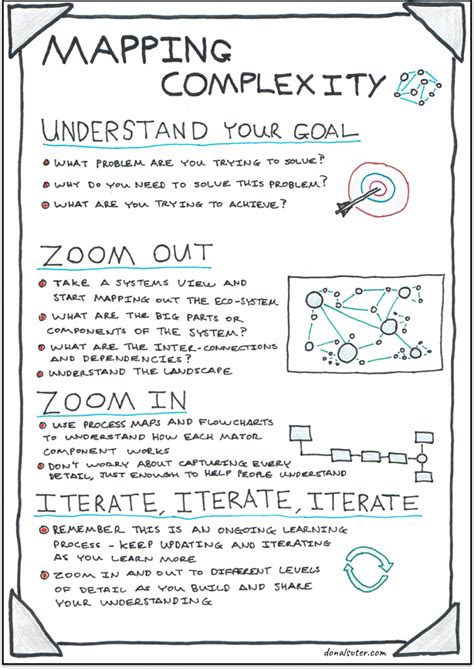 MAPPING
COMPLEXITY
UNDERSTAND YOUR GOAL
WHAT PROBLEM ARE YOU TRYING TO SOLVE?
WHY DO YOU NEED TO SOLVE THIS PROBLEM?
WHAT ARE YOU TRYING TO ACHIEVE?
ZOOM OUT
TAKE A SYSTEMS VIEW AND
START MAPPING OUT THE ECO-SYSTEM
WHAT ARE THE BIG PARTS OR
COMPONENTS OF THE SYSTEM?
WHAT ARE THE INTER-CONNECTIONS
AND DEPENDENCIES?
UNDERSTAND THE LANDSCAPE
ZOOM IN
USE PROCESS MAPS AND FLOWCHARTS
TO UNDERSTAND HOW EACH MATOR
COMPONENT WORKS
DON'T WORRY ABOUT CAPTURING EVERY
DETAIL, JUST ENOUGH TO HELP PEOPLE UNDERSTAND
ITERATE, ITERATE, ITERATE
REMEMBER THIS IS AN ONGOING LEARNING
PROCESS - KEEP UPDATING AND ITERATING
AS YOU LEARN MORE
ZOOM IN AND OUT TO DIFFERENT LEVELS
OF DETAIL AS YOU BUILD AND SHARE
YOUR UNDERSTANDING
donalsuter.com